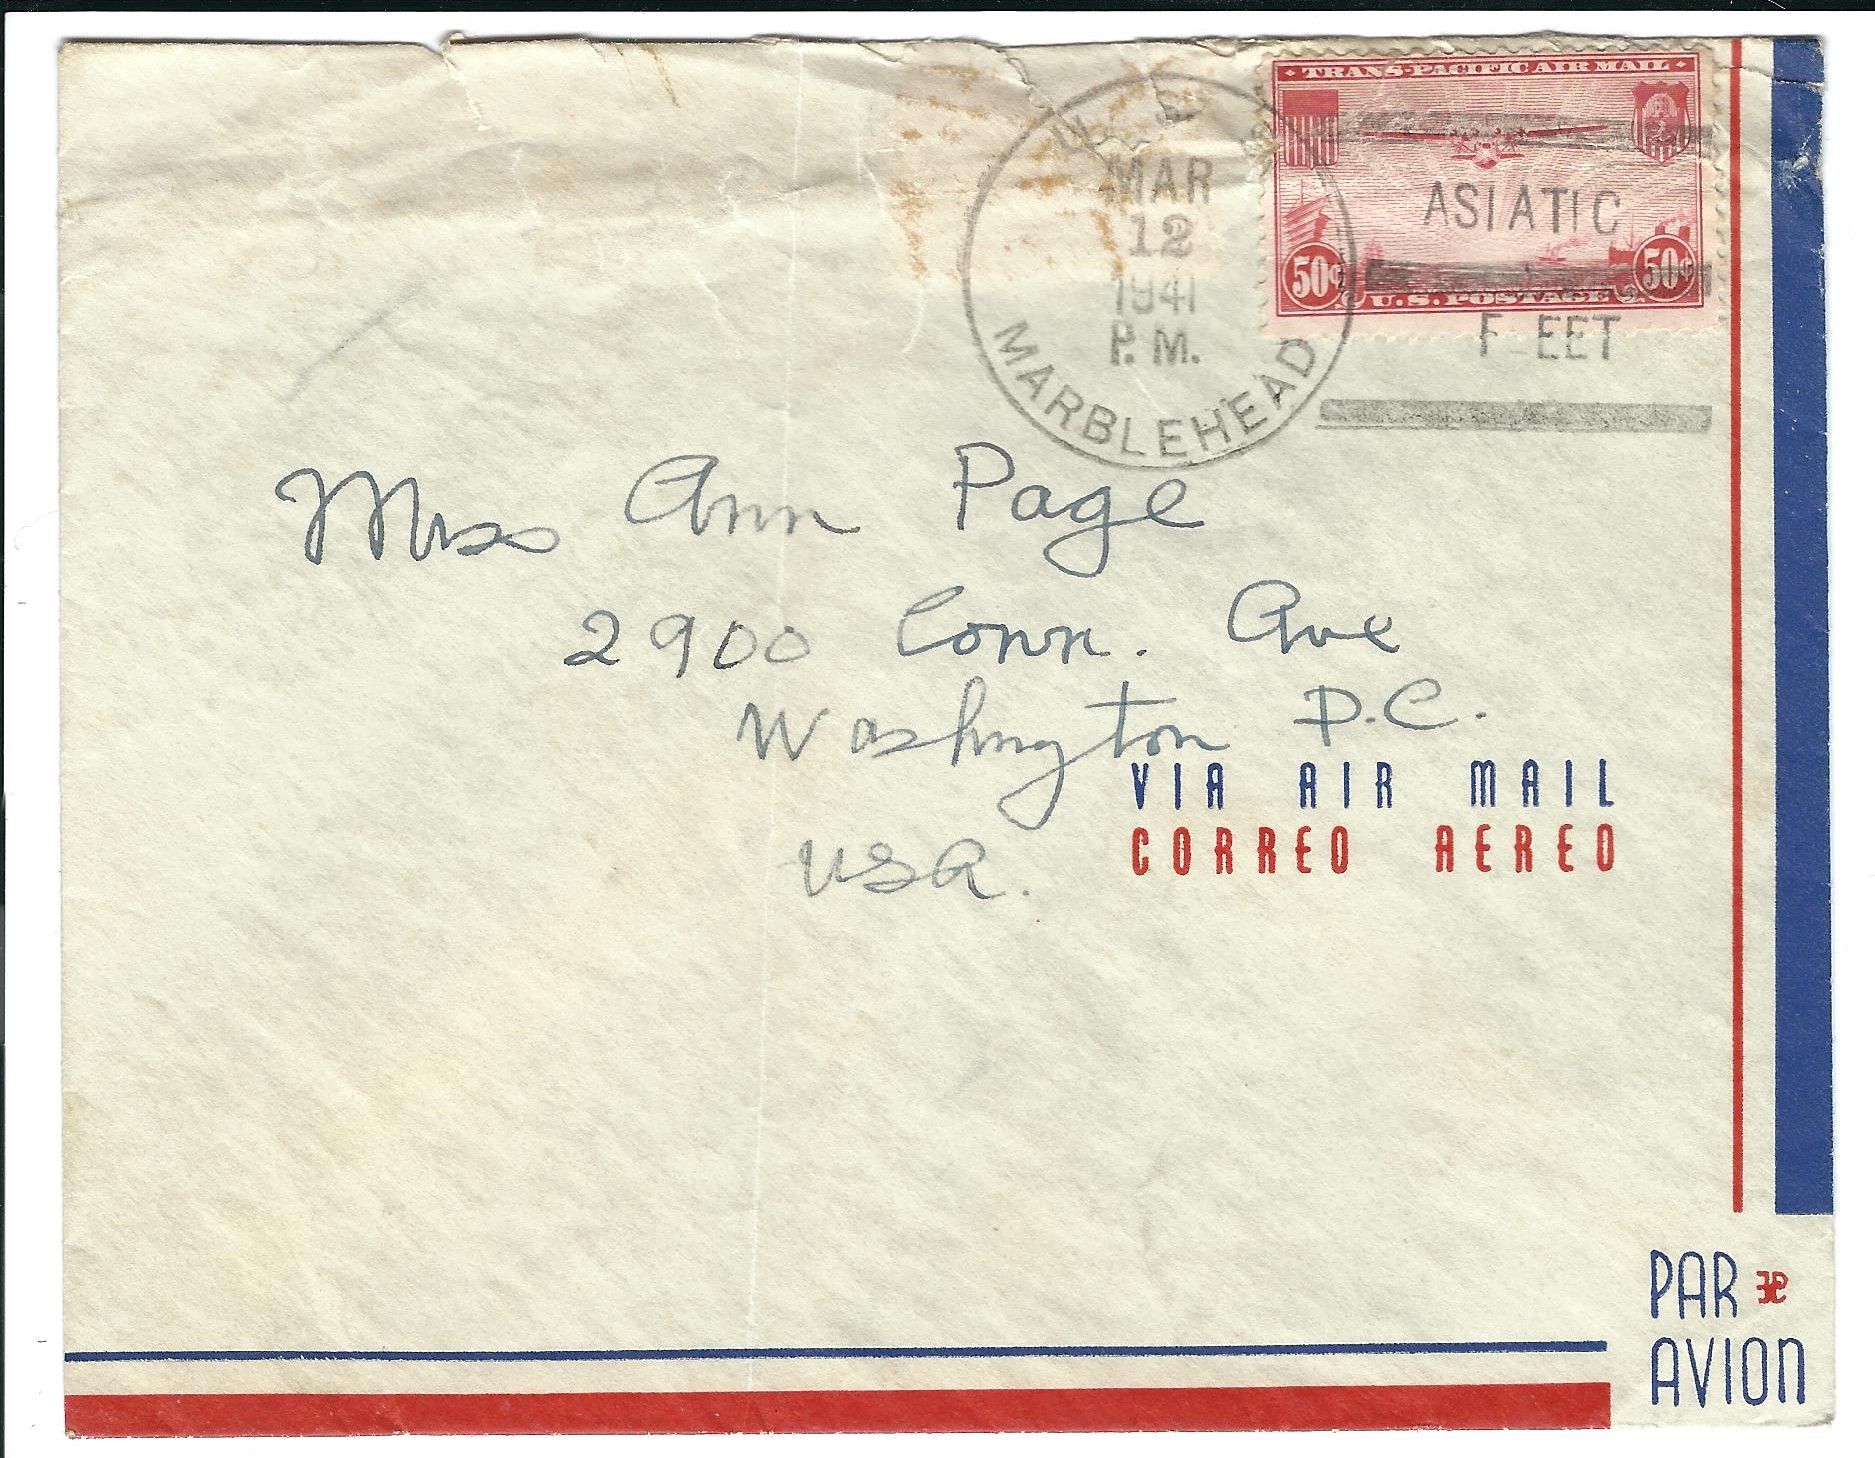 TRANS-PACIFIC AIR MAIL
50¢ U.S. POSTAGE 50¢
U. S. S.
MAR
12
1941
P. M.
MARBLEHEAD
ASIATIC
FLEET
Miss Ann Page
2900 Conn. Ave
Washington D.C.
USA.
VIA AIR MAIL
CORREO AEREO
PAR
AVION